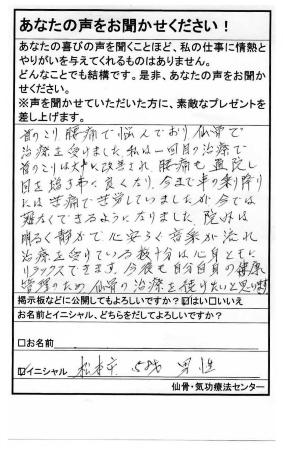 あなたの声をお聞かせください！
あなたの喜びの声を聞くことほど、私の仕事に情熱と
やりがいを与えてくれるものはありません。
どんなことでも結構です。是非、あなたの声をお聞か
せください。
※声を聞かせていただいた方に、素敵なプレゼントを
差し上げます。
首のこり腰痛で悩んでおり仙骨で
治療を受けました。私は一回目の治療で
首のこりは大巾に改善され、腰痛も直院し
回を増す毎に良くなり、今まで車の乗り降り
には苦痛で苦労していましたが今では
難なくできるようになりました。院外は
明るく静かで心安らぐ音楽が流れ
治療を受けている数十分は心身ともに
リラックスできます。今後も自分自身の健康
管理のため仙骨の治療を続けたいと思います
掲示板などに公開してもよろしいですか？☑はい□いいえ
お名前とイニシャル、どちらをだしてよろしいですか？
□お名前
☑イニシャル 松本市 58才 男性
仙骨・気功療法センター